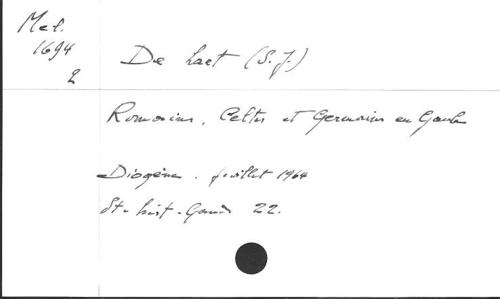 Mel.
1694
2
De Laet (S.J.)
Romains, Celtes et Germains en Gaule
Diogène. juillet 1964
St. hist. Gand 22.